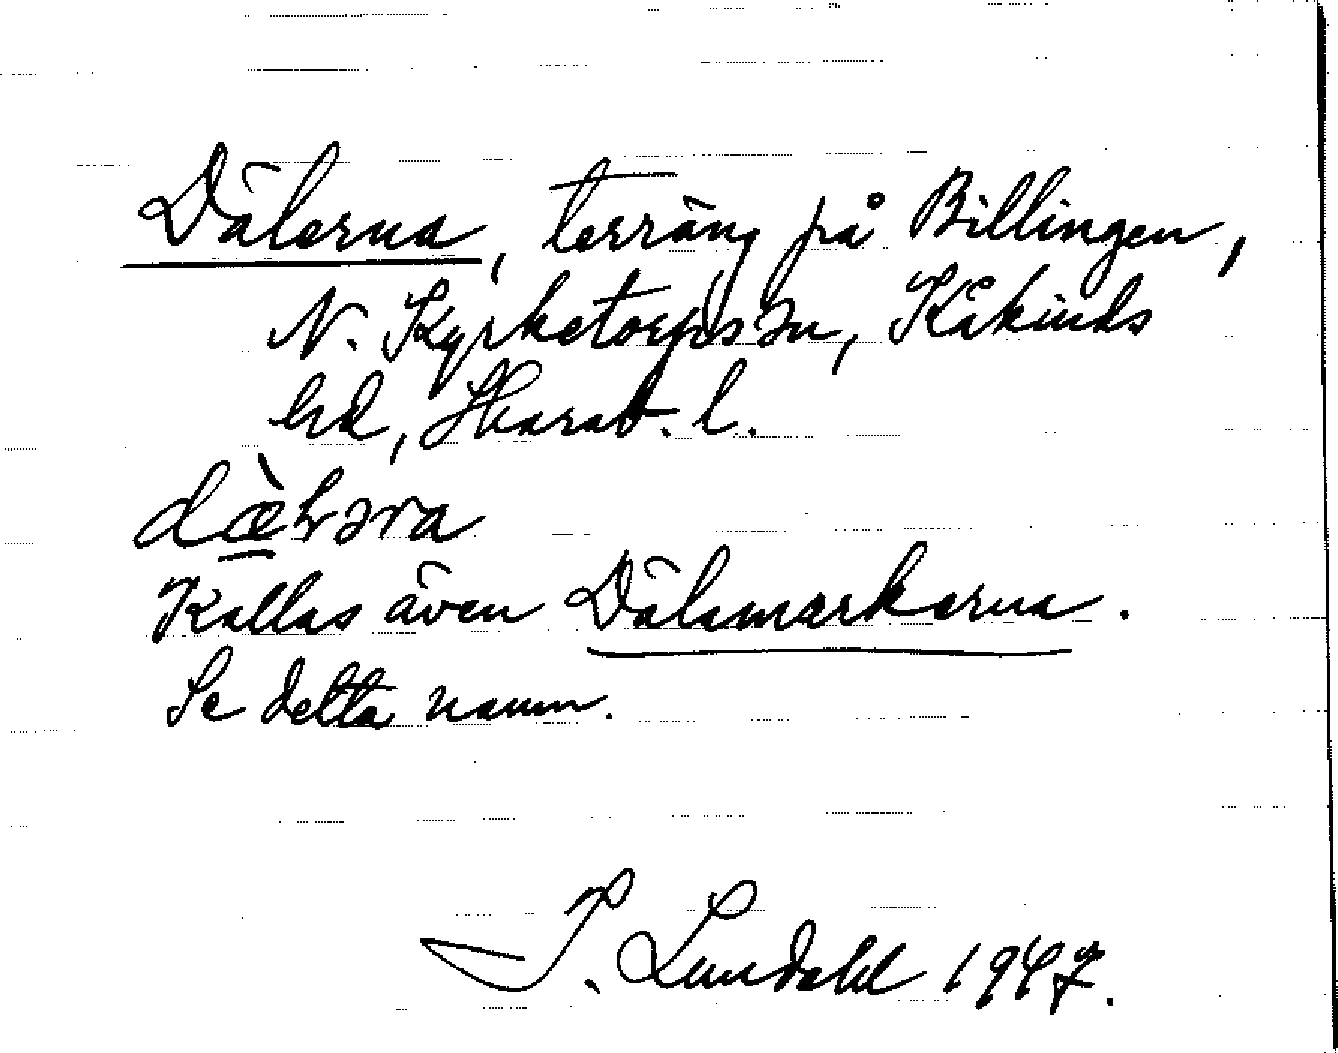 Dälerna, terräng på Billingen,
N. Kyrketorps sn, Kåkinds
hd, Skarab. l.
dæ̀ɫəra
Kallas även Dälamarkerna.
Se detta namn.
I. Lundahl 1947.